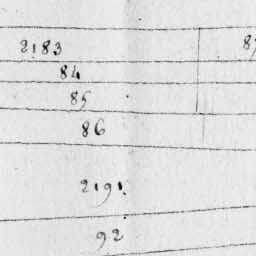 2183
84
85
86
2191
92